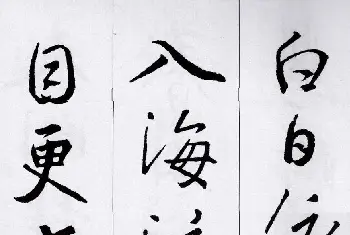 白日依
入海流
目更上